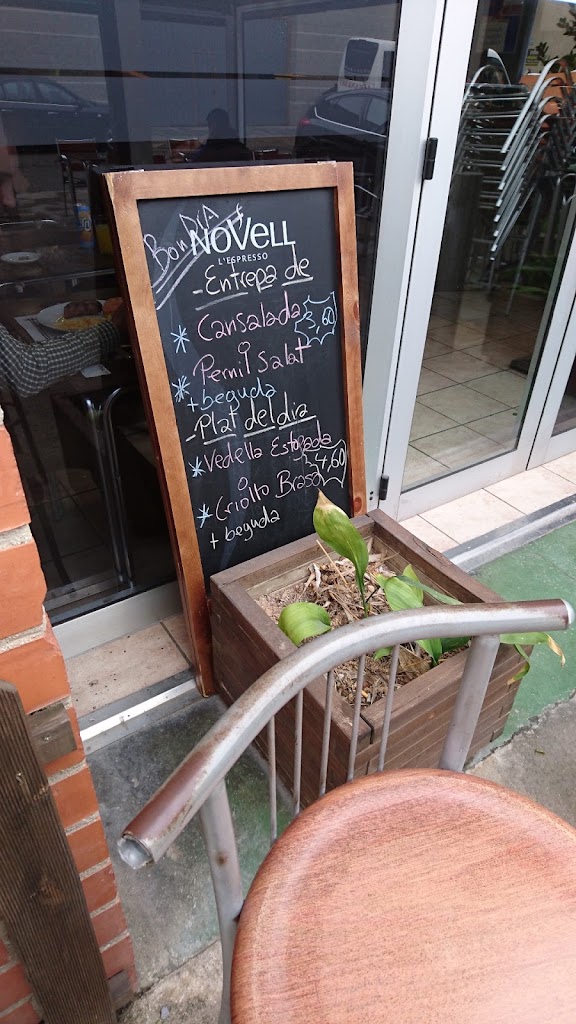 Bon DIA
NOVELL
L'ESPRESSO
- Entrepa de
* Cansalada 3,60
o
* Pernil Salat
+ beguda
- Plat del dia
* Vedella Estofada
o 4,60
* Criollo Brasa
+ beguda